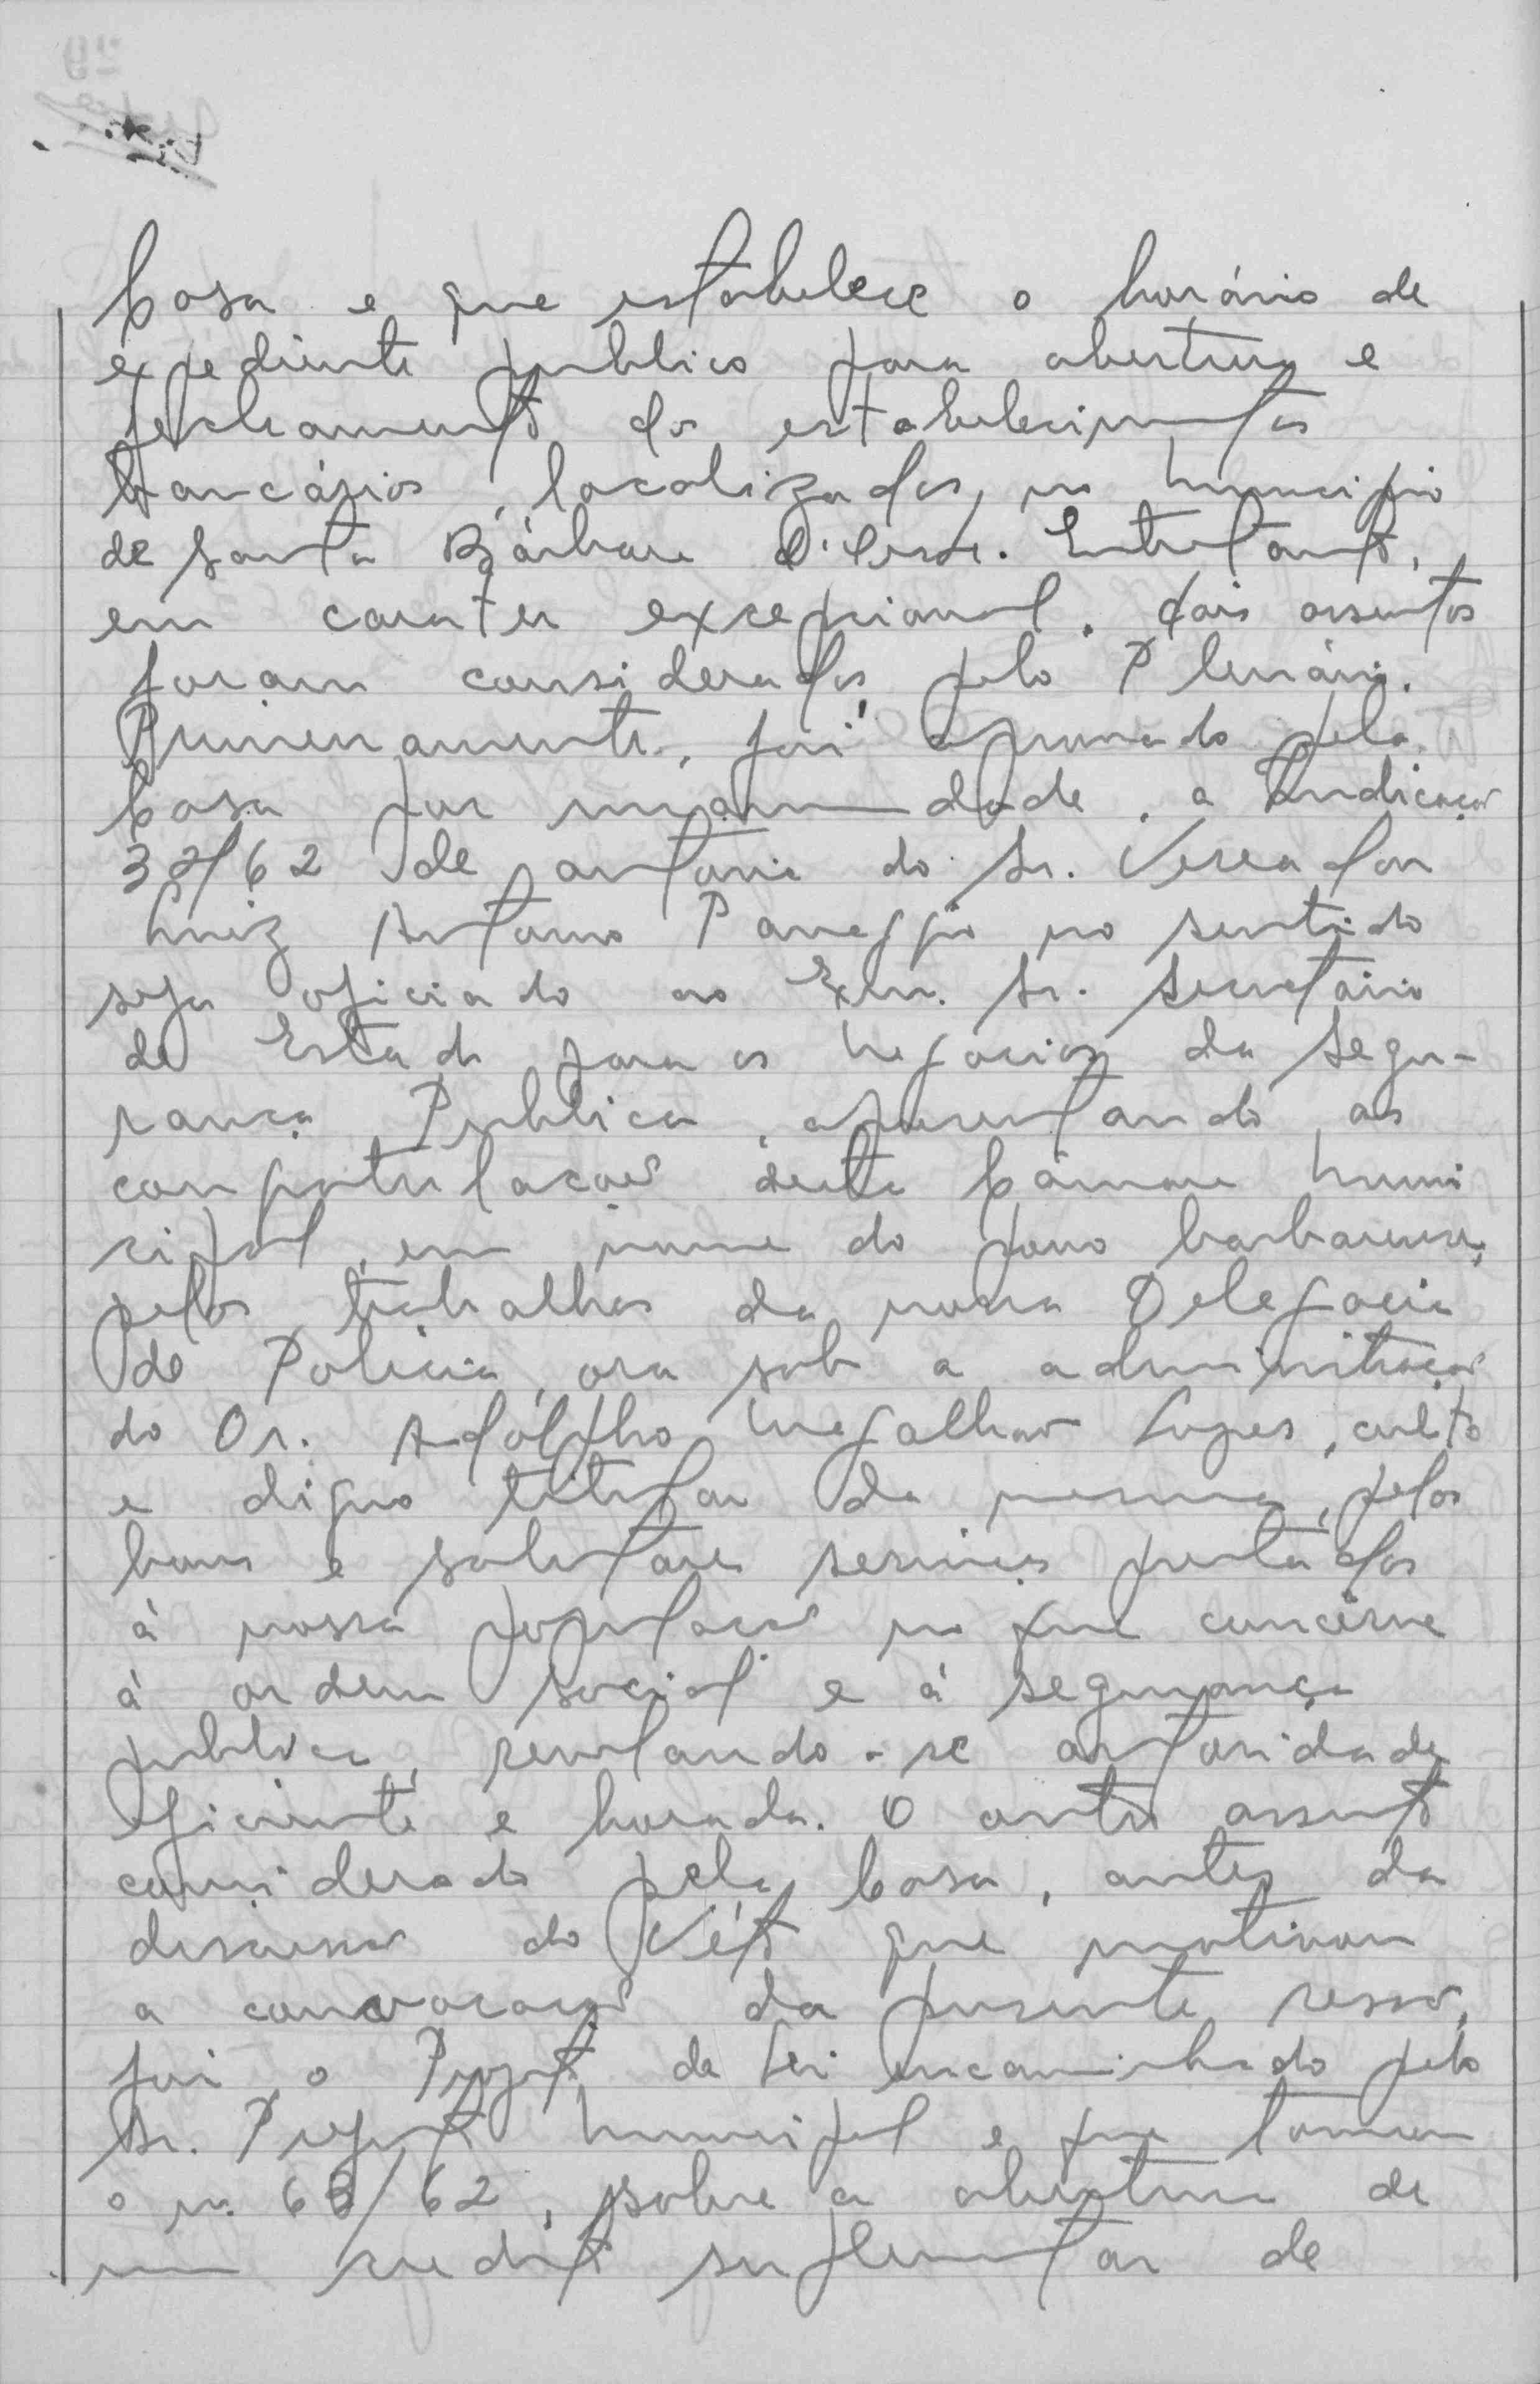 Casa e que estabelece o horário de
expediente publico para abertura e
fechamento dos estabelecimentos
bancários, localizados, no Municipio
de Santa Bárbara D'Oeste. Entretanto,
em carater excepcional, dois assuntos
foram considerados pelo Plenário.
Primeiramente, foi aprovado pela
Casa por unanimidade, a Indicação
32/62 de autoria do Sr. Vereador
Luiz Antonio Paneggio no sentido
seja oficiado ao Exmo. Sr. Secretário
de Estado para os Negocios da Segu-
rança Publica, apresentando as
congratulações desta Câmara Muni
cipal, em nome do povo barbarense,
pelos trabalhos da nossa Delegacia
de Policia, ora sob a administração
do Dr. Adólpho Magalhães Lopes, culto
e digno titular da mesma, pelos
bons e salutares serviços prestados
à nossa população no que concerne
à ordem social e à segurança
publica, revelando-se autoridade
eficiente e honrada. O outro assunto
considerado pela Casa, antes da
discussão do Véto que motivou
a convocação da presente sessão,
foi o Projeto de Lei encaminhado pelo
Sr. Prefeito Municipal e que tomou
o n. 63/62, sobre a abertura de
um credito suplementar de